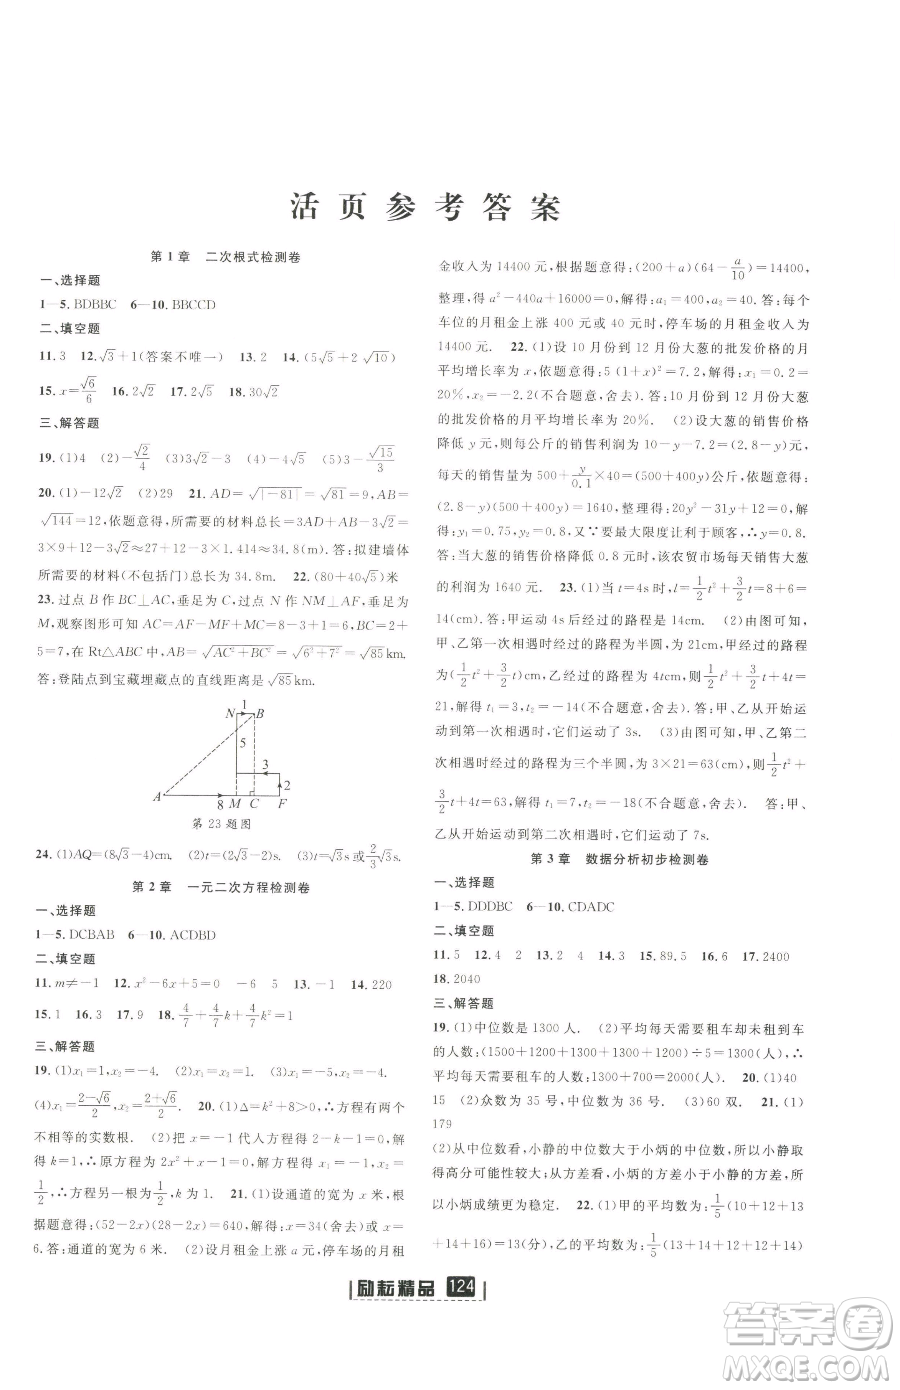 活页参考答案
第1章 二次根式检测卷
一、选择题
1—5. BDBBC 6—10. BBCCD
二、填空题
11. 3 12. √3+1(答案不唯一) 13. 2 14. (5√5+2√10)
15. x=√6/6 16. 2√2 17. 2√5 18. 30√2
三、解答题
19. (1)4 (2)-√2/4 (3)-4√3-4√5 (5)3-√15/3
20. (1)-12√2 (2)29 21. AD=√|-81|=√81=9, AB=
√144=12,依题意得,所需要的材料总长=3AD+AB-3√2=
3×9+12-3√2≈27+12-3×1.414≈34.8(m). 答:拟建墙体
所需要的材料(不包括门)总长为34.8m. 22. (80+40√6)米
23. 过点B作BC⊥AC,垂足为C,过点N作NM⊥AF,垂足为
M,观察图形可知AC=AF-MF+MC=8-3+1=6, BC=2+
5=7,在Rt△ABC中, AB=√AC²+BC²=√6²+7²=√85km.
答:登陆点到宝藏埋藏点的直线距离是√85km.
N 1 B
5
3
2
A 8 M C F
第23题图
24. (1)AQ=(8√3-4)cm. (2)t=√3s. (3)t=√3s或2√3/3s
第2章 一元二次方程检测卷
一、选择题
1—5. DCBAB 6—10. ACDBD
二、填空题
11. m≠-1 12. x²-6x+5=0 -6 5 13. -1 14. 220
15. 1 16. 3 17. 9 18. 4/7 4/7k+4/7k²=1
三、解答题
19. (1)x₁=1, x₂=-4. (2)x₁=-2, x₂=4. (3)x₁=3, x₂=-1.
(4)x₁=2-√6/2, x₂=2+√6/2. 20. (1)Δ=k²+8>0,∴方程有两个
不相等的实数根. (2)把x=-1代人方程得2-k-1=0,解
得k=1,∴原方程为2x²+x-1=0,解得x₁=-1, x₂=
1/2,∴方程另一根为1/2, k为1. 21. (1)设通道的宽为x米,根
据题意得:(52-2x)(28-2x)=640,解得:x=34(舍去)或x=
6. 答:通道的宽为6米. (2)设月租金上涨a元,停车场的月租
金收入为14400元,根据题意得:(200+a)(64-a/10)=14400,
整理,得a²-440a+16000=0,解得a₁=400, a₂=40. 答:每个
车位的月租金上涨400元或40元时,停车场的月租金收入为
14400元. 22. (1)设10月份到12月份大葱的批发价格的月
平均增长率为x,依题意得:5(1+x)²=7.2,解得:x₁=0.2=
20%, x₂=-2.2(不合题意,舍去). 答:10月份到12月份大葱
的批发价格的月平均增长率为20%. (2)设大葱的销售价格
降低y元,则每公斤的销售利润为10-y-7.2=(2.8-y)元,
每天的销售量为500+y/0.1×40=(500+400y)公斤,依题意得:
(2.8-y)(500+400y)=1640,整理得:20y²-31y+12=0,解
得:y₁=0.75, y₂=0.8,又∵要最大限度让利于顾客,∴y=0.8.
答:当大葱的销售价格降低0.8元时,该农贸市场每天销售大葱
的利润为1640元. 23. (1)当t=4s时, l=1/2t²+3/2t=8+6=
14(cm). 答:甲运动4s后经过的路程是14cm. (2)由图可知,
甲、乙第一次相遇时经过的路程为半圆,为21cm,甲经过的路程
是(1/2t²+3/2t)cm,乙经过的路程为4tcm,则1/2t²+3/2t+4t=
21,解得t₁=3, t₂=-14(不合题意,舍去). 答:甲、乙从开始运
动到第一次相遇时,它们运动了3s. (3)由图可知,甲、乙第二
次相遇时经过的路程为三个半圆,为3×21=63(cm),则1/2t²+
3/2t+4t=63,解得t₁=7, t₂=-18(不合题意,舍去). 答:甲、
乙从开始运动到第二次相遇时,它们运动了7s.
第3章 数据分析初步检测卷
一、选择题
1—5. DDDBC 6—10. CDADC
二、填空题
11. 5 12. 4 13. 2 2 14. 4 15. 89.5 16. 3 17. 2400
18. 2040
三、解答题
19. (1)中位数是1300人. (2)平均每天需要租车却未租到车
的人数:(1500+1200+1300+1300+1200)÷5=1300(人),∴
平均每天需要租车的人数为1300+700=2000(人). 20. (1)40
15 (2)众数为35号,中位数为36号. (3)60双. 21. (1)
179
(2)从中位数看,小静的中位数大于小炳的中位数,说明小静取
得高分可能性较大;从方差看,小炳的方差小于小静的方差,所
以小炳成绩更为稳定. 22. (1)甲的平均数为:1/5(10+12+13
+14+16)=13(分),乙的平均数为:1/5(13+14+12+12+14)
励耘精品 124
答案圈
MXQE.COM